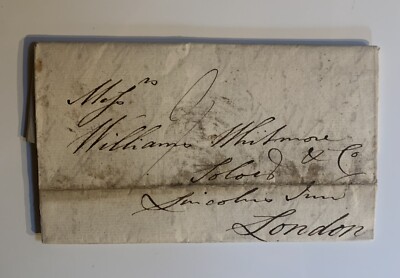 Messrs
Williams Whitmore
& Co
Solors
Lincolns Inn
London